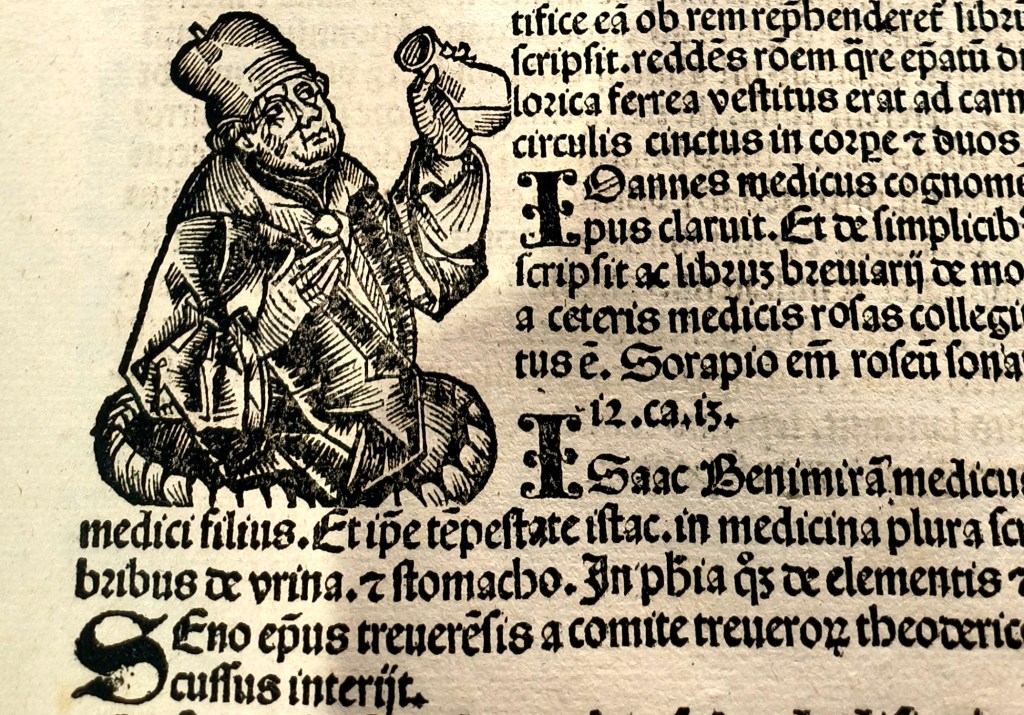 tifice eā ob rem rep̄henderet̄ libru
scripsit. reddēs rōem q̄re ep̄atū
lorica ferrea vestitus erat ad carn
circulis cinctus in corꝑe ⁊ duos
IOannes medicus cognome
pus claruit. Et de simplicib
scripsit ac libruꝫ breuiarij de mo
a ceteris medicis rosas collegi
tus ē. Sorapio em̄ roseū sona
12. ca. 13.
ISaac Benimirā medicus
medici filius. Et ip̄e tēpestate istac. in medicina plura scr
bribus de vrina. ⁊ stomacho. In ph̄ia q̊ꝫ de elementis ⁊
SEno ep̄us treuerēsis a comite treueroꝝ theoderico
cussus interijt.